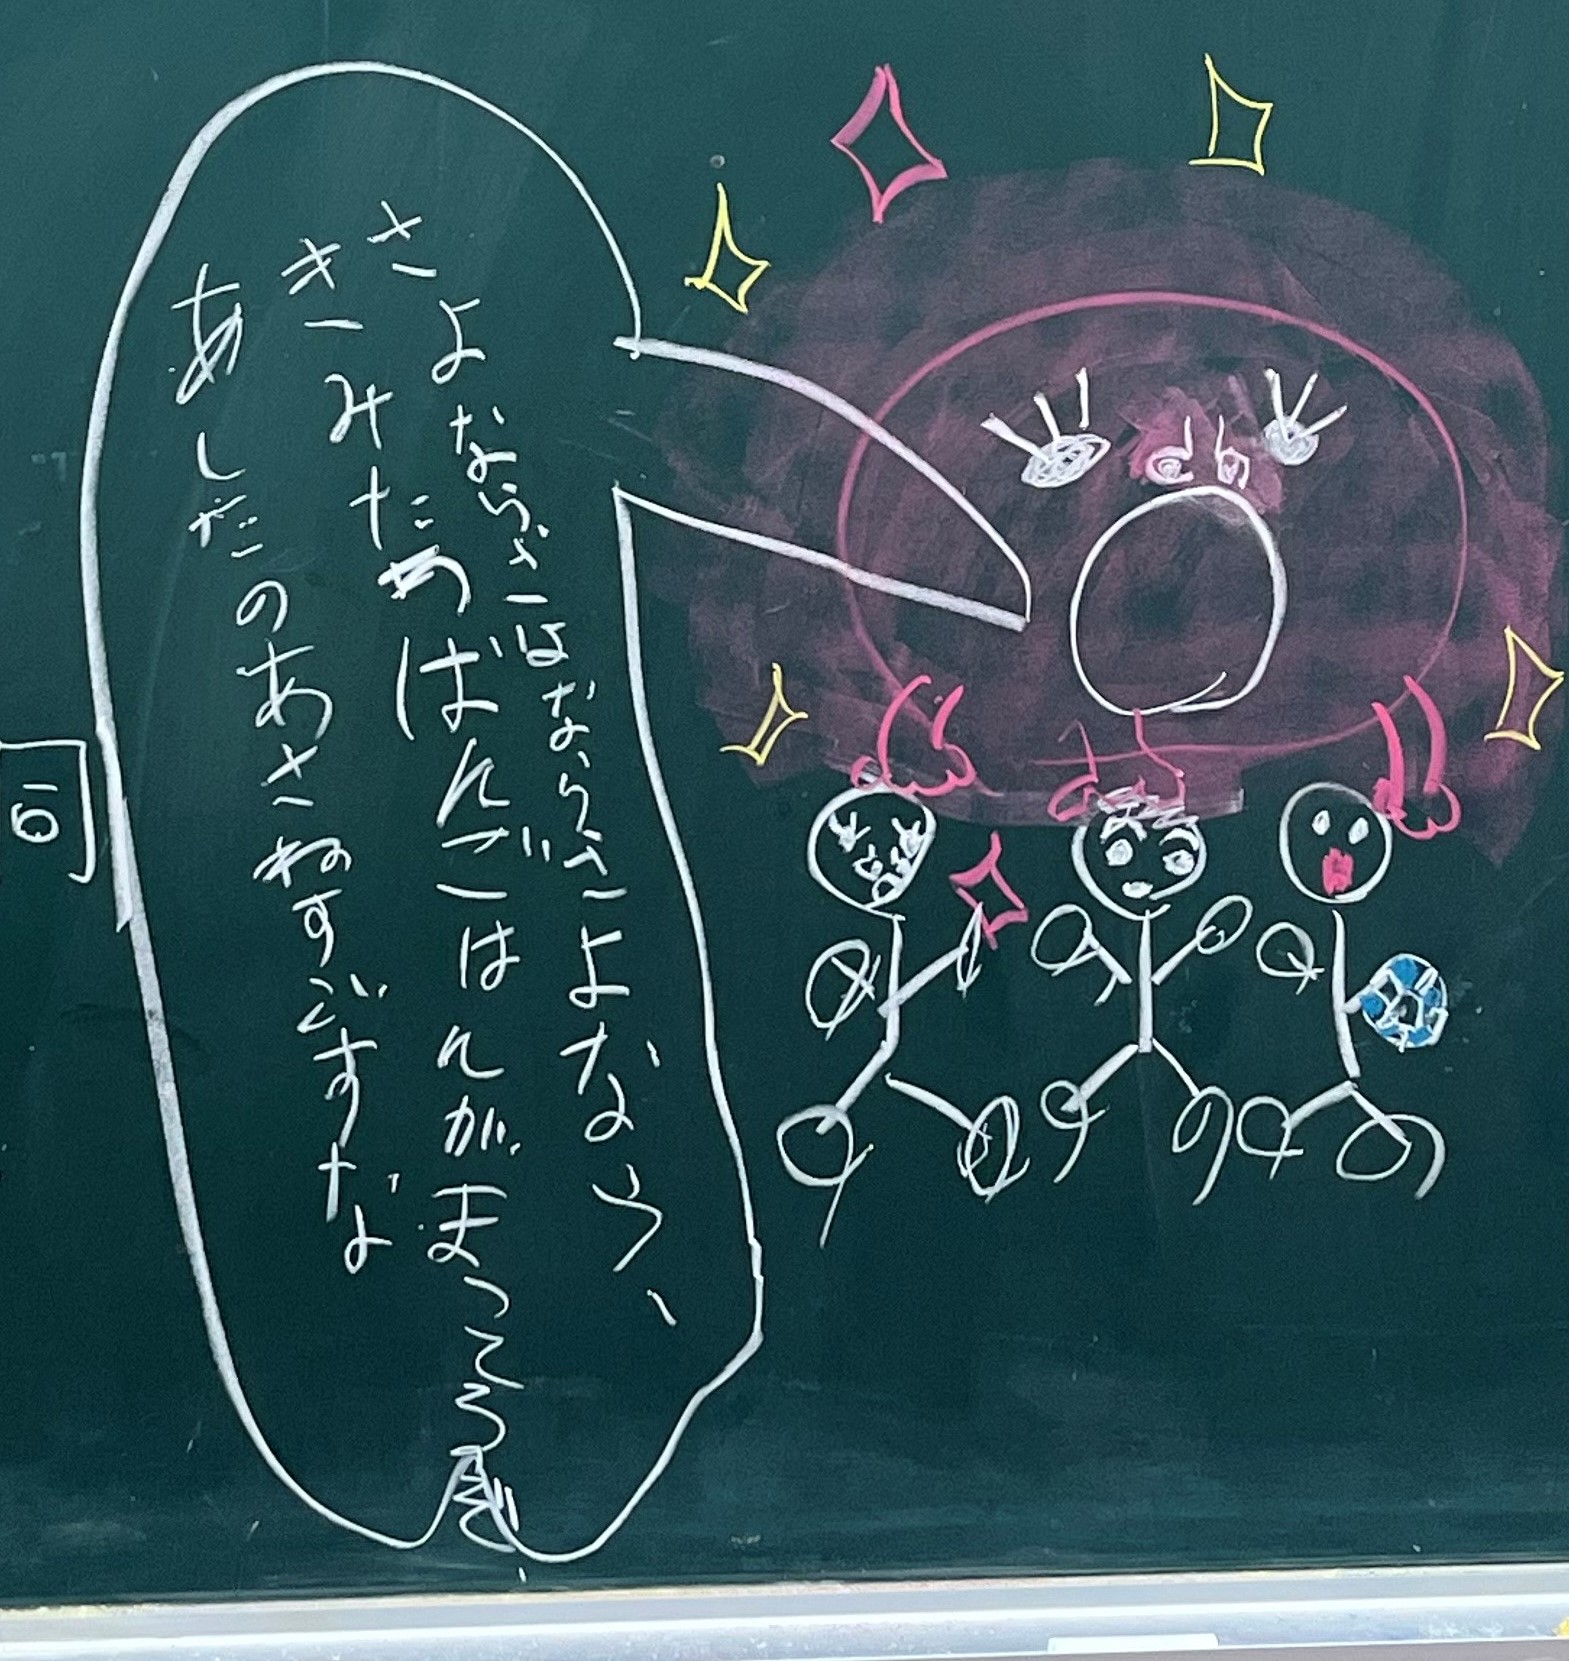 さよならさはならさよなら、
きみたちばんごはんがまってろ
あしだのあさねすごすな